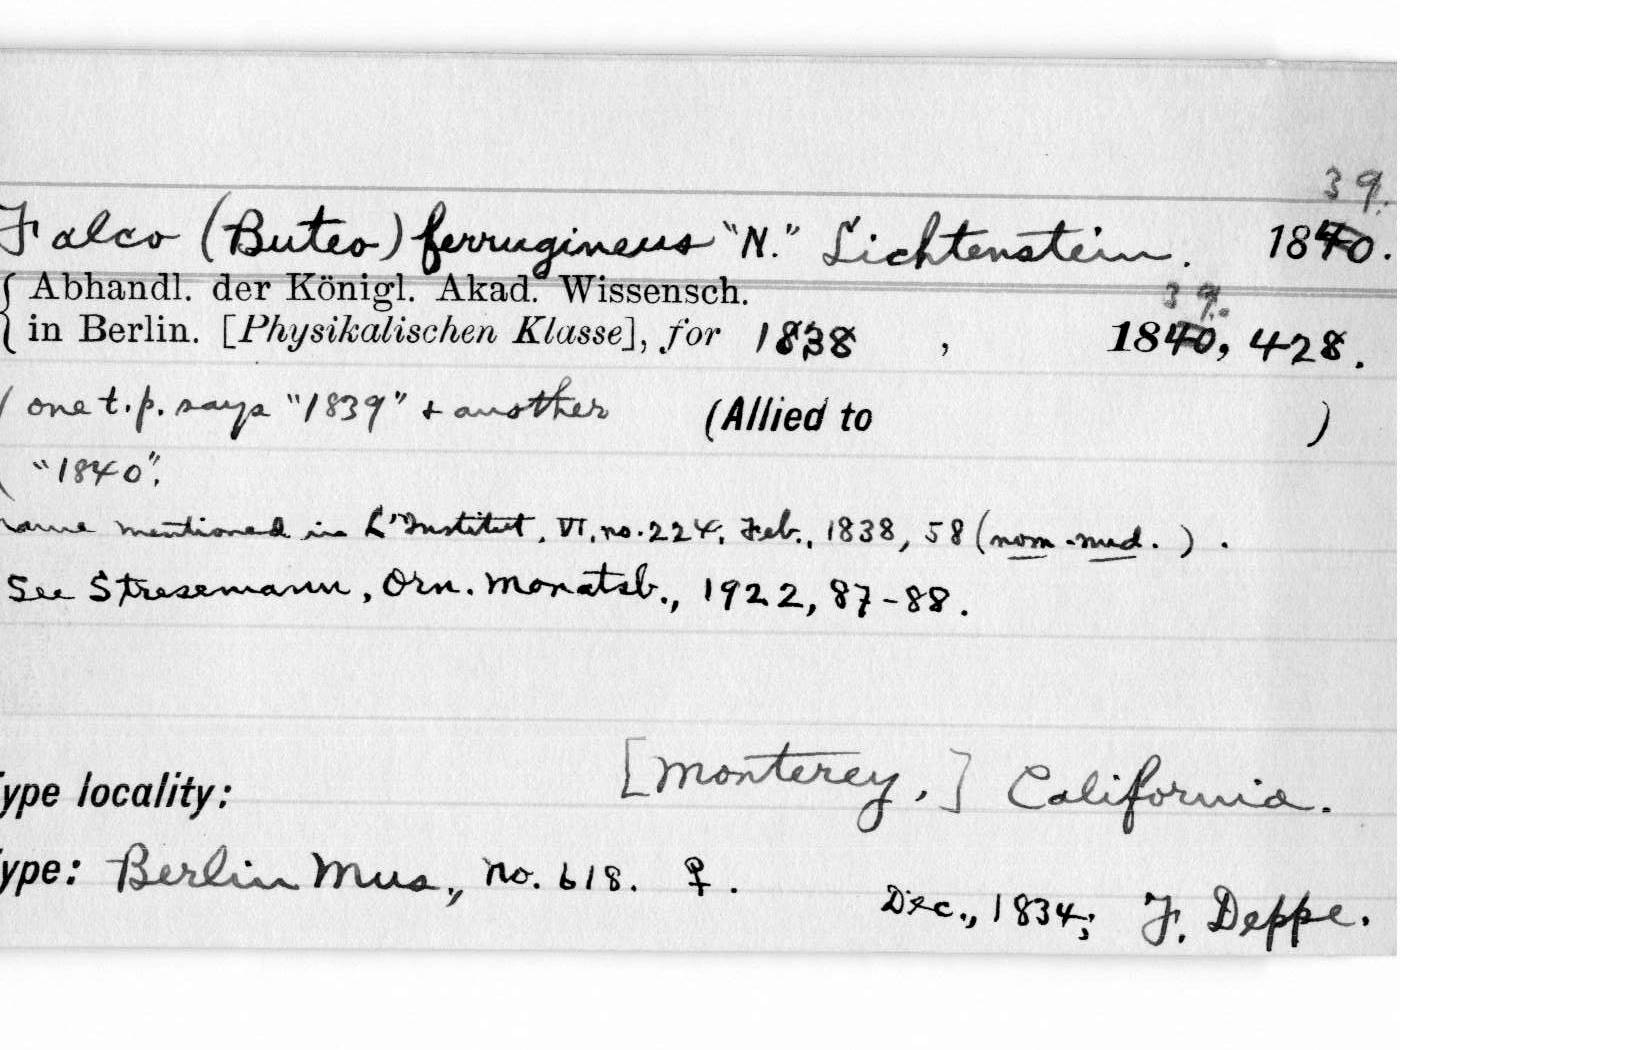 39.
Falco (Buteo) ferrugineus "N." Lichtenstein. 1840.
Abhandl. der Königl. Akad. Wissensch.
39.
in Berlin. [Physikalischen Klasse], for 1838 , 1840, 428.
(one t.p. says "1839" + another (Allied to )
"1840".
name mentioned in L'Institut, VI, no. 224, Feb., 1838, 58 (nom. nud.).
See Stresemann, Orn. Monatsb., 1922, 87-88.
ype locality: [Monterey,] California.
ype: Berlin Mus., no. 618. ♀.
Dec., 1834; F. Deppe.